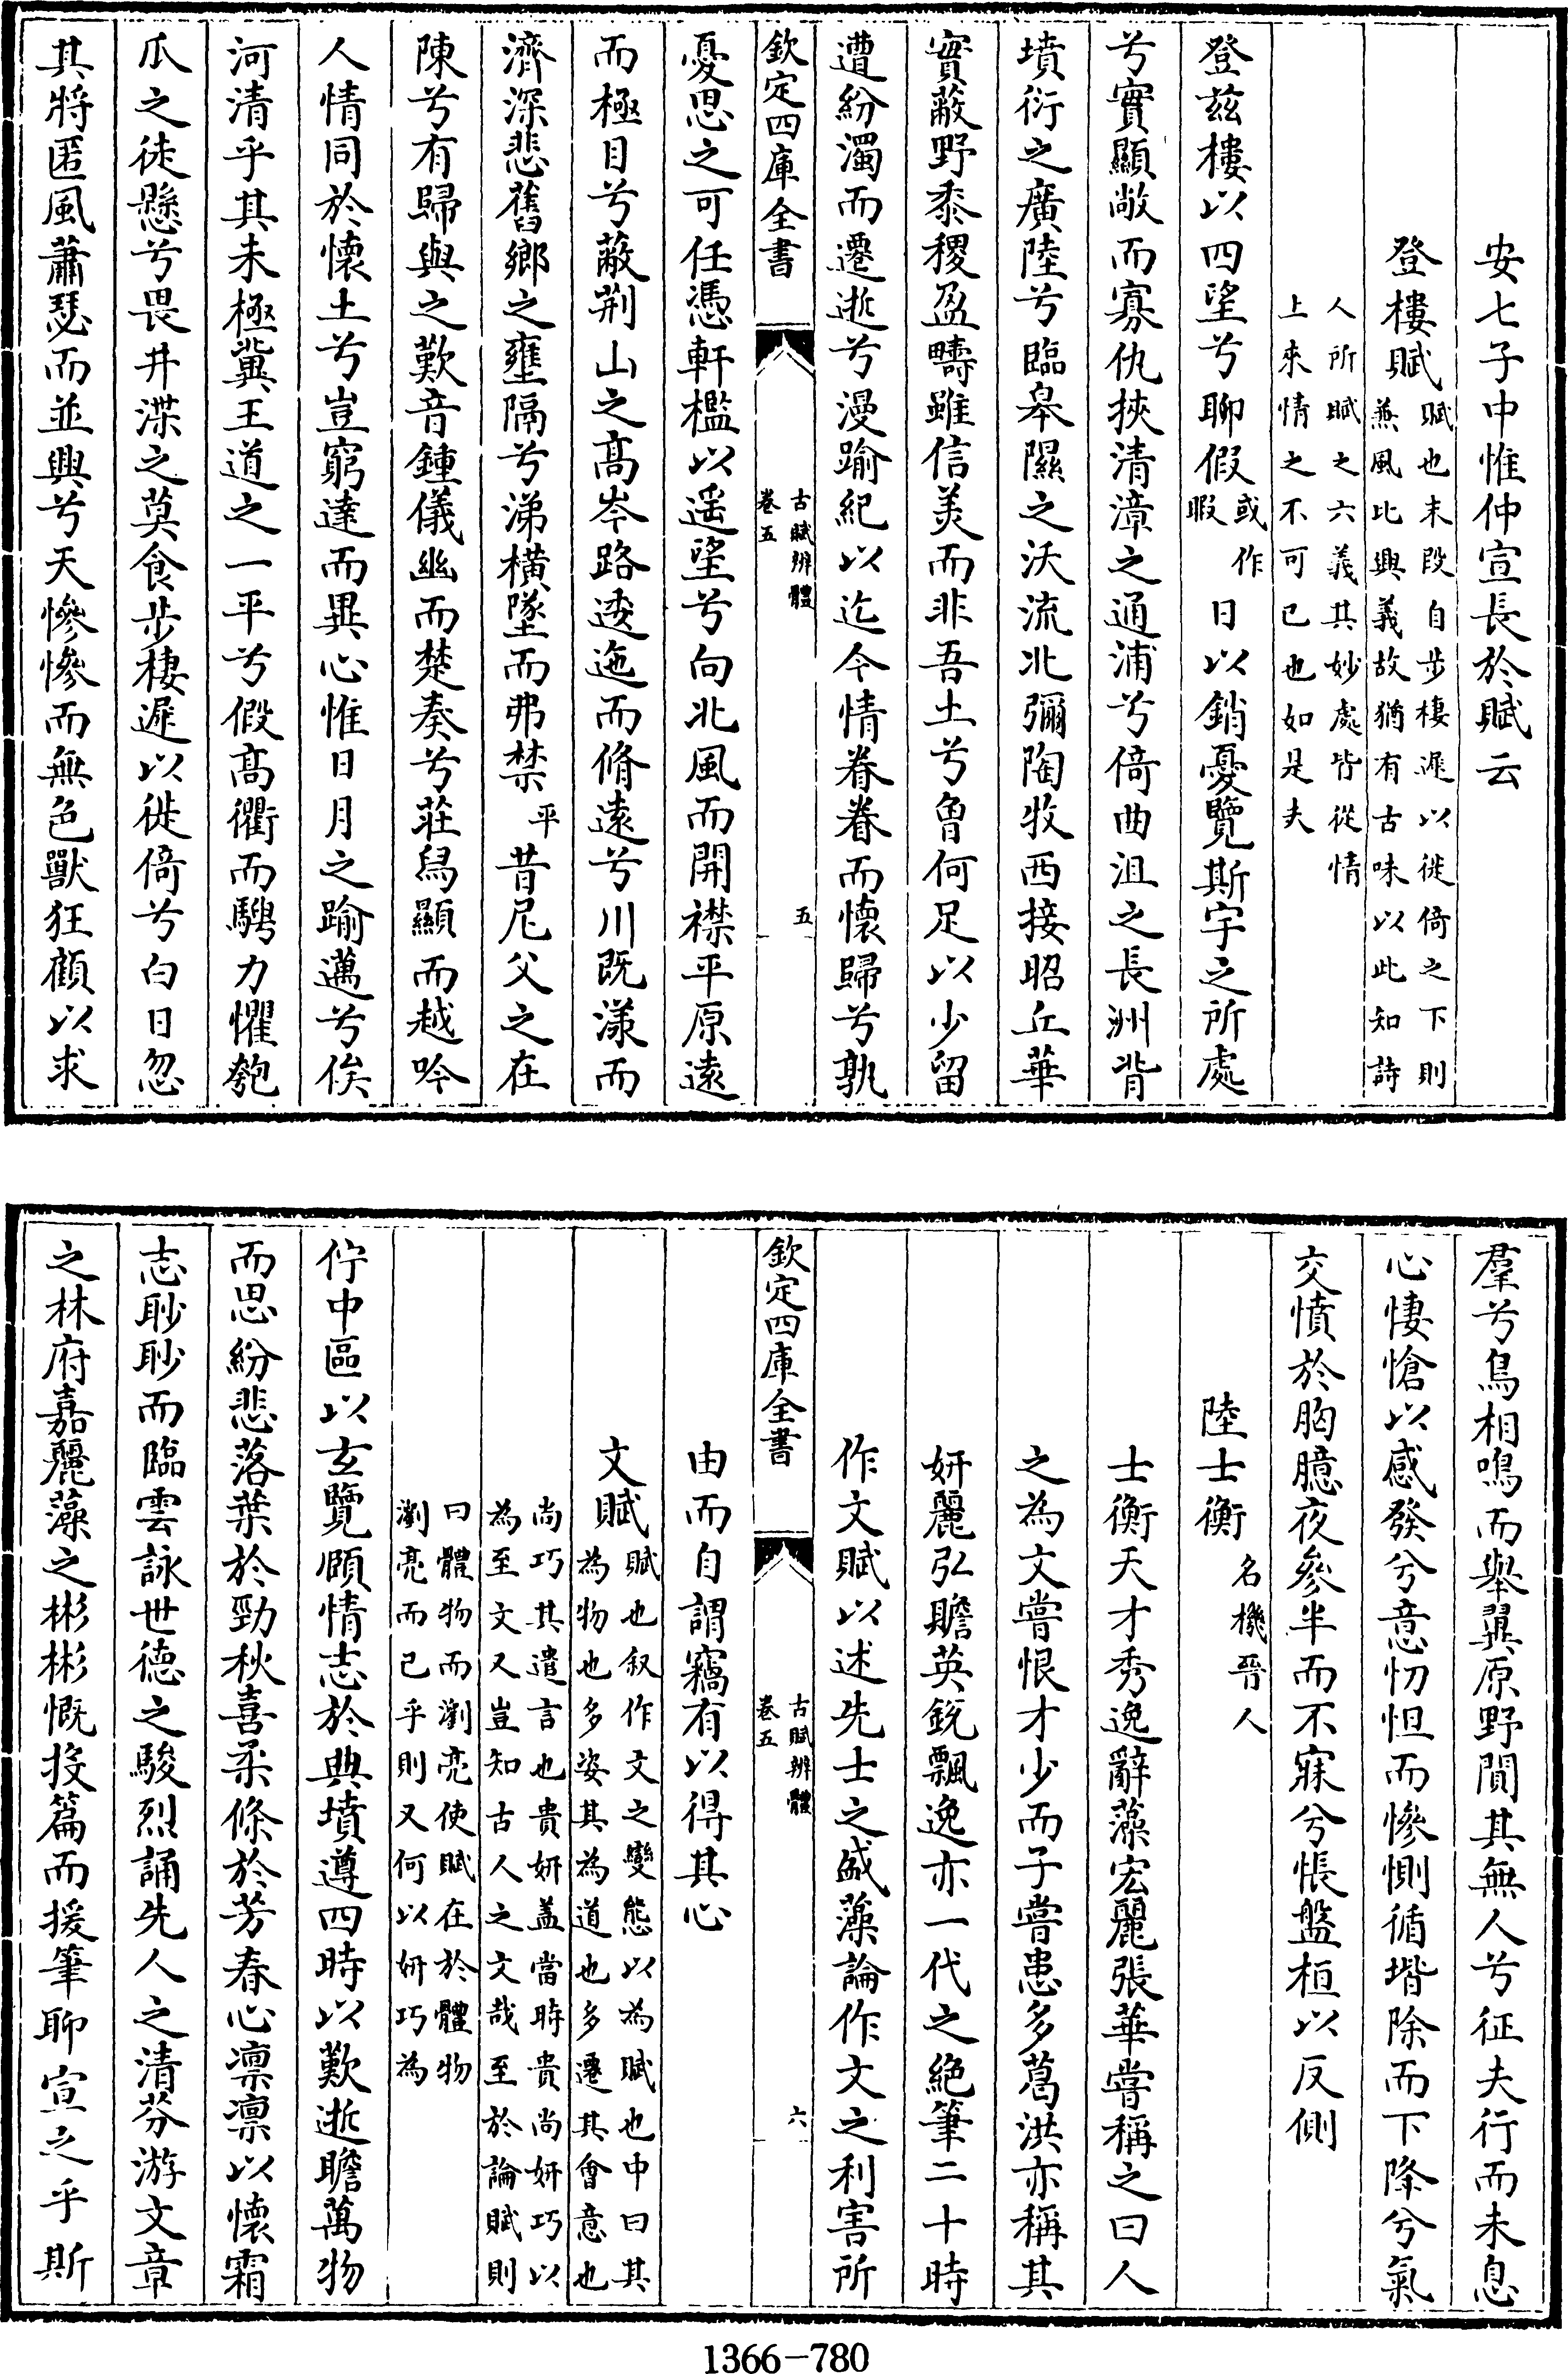 安七子中惟仲宣長於賦云
登樓賦 賦也末段自步棲遲以徙倚之下則
兼風比興義故猶有古味以此知詩
人所賦之六義其妙處皆從情
上來情之不可已也如是夫
登茲樓以四望兮聊假 或作
暇 日以銷憂覽斯宇之所處
兮實顯敞而寡仇挾清漳之通浦兮倚曲沮之長洲背
墳衍之廣陸兮臨皋隰之沃流北彌陶牧西接昭丘華
實蔽野黍稷盈疇雖信美而非吾土兮曾何足以少留
遭紛濁而遷逝兮漫踰紀以迄今情眷眷而懷歸兮孰
欽定四庫全書
古賦辨體
卷五
五
憂思之可任憑軒檻以遥望兮向北風而開襟平原遠
而極目兮蔽荆山之髙岑路逶迤而脩遠兮川既漾而
濟深悲舊鄉之壅隔兮涕橫墜而弗禁 平 昔尼父之在
陳兮有歸與之歎音鍾儀幽而楚奏兮莊舄顯而越吟
人情同於懷土兮豈窮達而異心惟日月之踰邁兮俟
河清乎其未極冀王道之一平兮假髙衢而騁力懼匏
瓜之徒懸兮畏井渫之莫食步棲遲以徙倚兮白日忽
其將匿風蕭瑟而並興兮天慘慘而無色獸狂顧以求
羣兮鳥相鳴而舉翼原野闃其無人兮征夫行而未息
心悽愴以感發兮意忉怛而慘惻循堦除而下降兮氣
交憤於胸臆夜參半而不寐兮悵盤桓以反側
陸士衡 名機晉人
士衡天才秀逸辭藻宏麗張華嘗稱之曰人
之為文嘗恨才少而子嘗患多葛洪亦稱其
妍麗弘贍英銳飄逸亦一代之絶筆二十時
作文賦以述先士之盛藻論作文之利害所
欽定四庫全書
古賦辨體
卷五
六
由而自謂竊有以得其心
文賦 賦也叙作文之變態以為賦也中曰其
為物也多姿其為道也多遷其會意也
尚巧其遣言也貴妍盖當時貴尚妍巧以
為至文又豈知古人之文哉至於論賦則
曰體物而瀏亮使賦在於體物
瀏亮而已乎則又何以妍巧為
佇中區以玄覽頤情志於典墳遵四時以歎逝瞻萬物
而思紛悲落葉於勁秋喜柔條於芳春心凛凛以懷霜
志眇眇而臨雲詠世德之駿烈誦先人之清芬游文章
之林府嘉麗藻之彬彬慨投篇而援筆聊宣之乎斯
1366-780